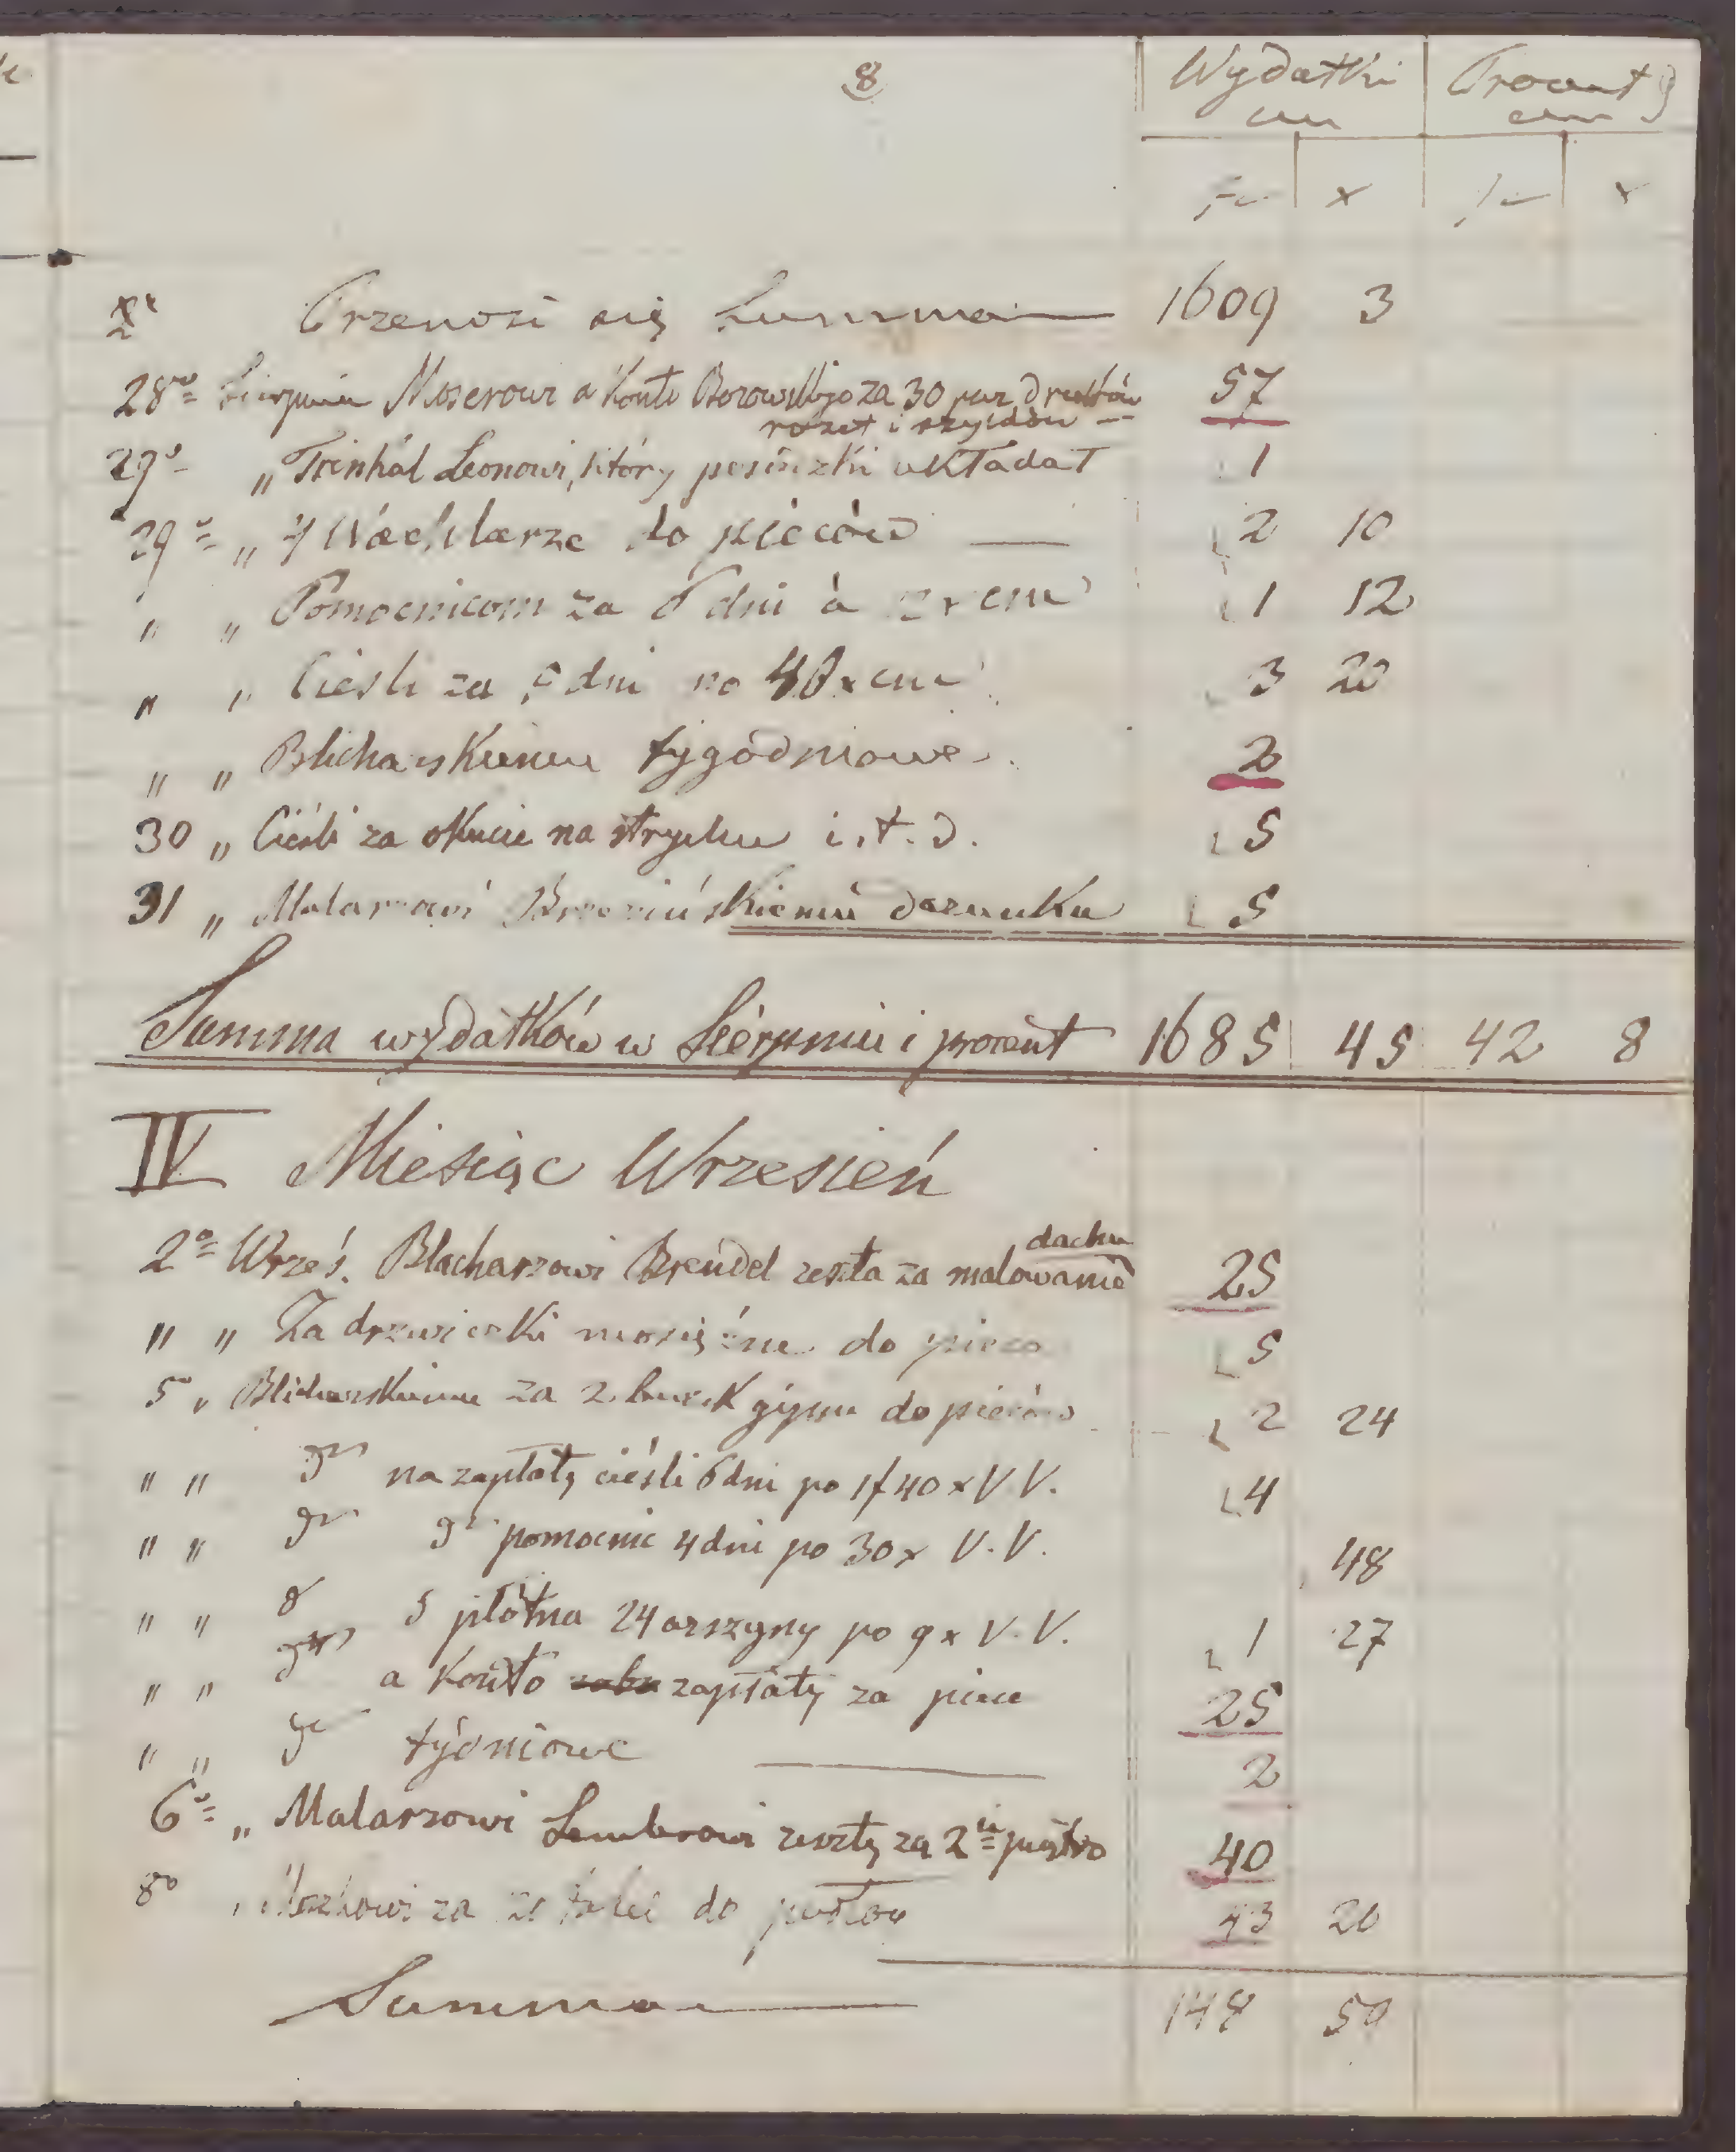 8
Wydatki Procent
cm cm
f x f x
Przenosi się Summa 1609 3
28º Sierpnia Moserowi a Konto Borowskiego za 30 par drutków 57
rozet i szyldów
29º „ Trinkal Leonowi, który posadzki układał 1
29º „ 4 do pieców 2 10
„ „ Pomocnicom za 6 dni à cm 1 12
„ „ Cieśli za 5 dni po 40 x cm 3 20
„ „ Blicharskiemu tygodniowe 2
30 „ Cieśli za okucie na strychu i.t.d. 5
31 „ Malarzowi Brzezińskiemu darunku 5
Summa wydatków w Sierpniu i procent 1685 45 42 8
IV Miesiąc Wrzesień
dachu
2º Wrześ. Blacharzowi Brendel reszta za malowanie 25
„ „ Za drzwiczki mosiężne do pieca 5
5 „ Blicharskiemu za 2 gipsu do pieców 2 24
„ „ na zapłatę cieśli 6 dni po 1f 40 x V.V. 4
„ „ pomocnic 4 dni po 30 x V.V. 48
„ „ 5 płótna 24 arszyny po 9 x V.V. 1 27
„ „ a Konto zapłaty za piece 25
„ „ tydniowe 2
6º „ Malarzowi resztę za 2ie piętro 40
8º „ za do 43 20
Summa 148 59